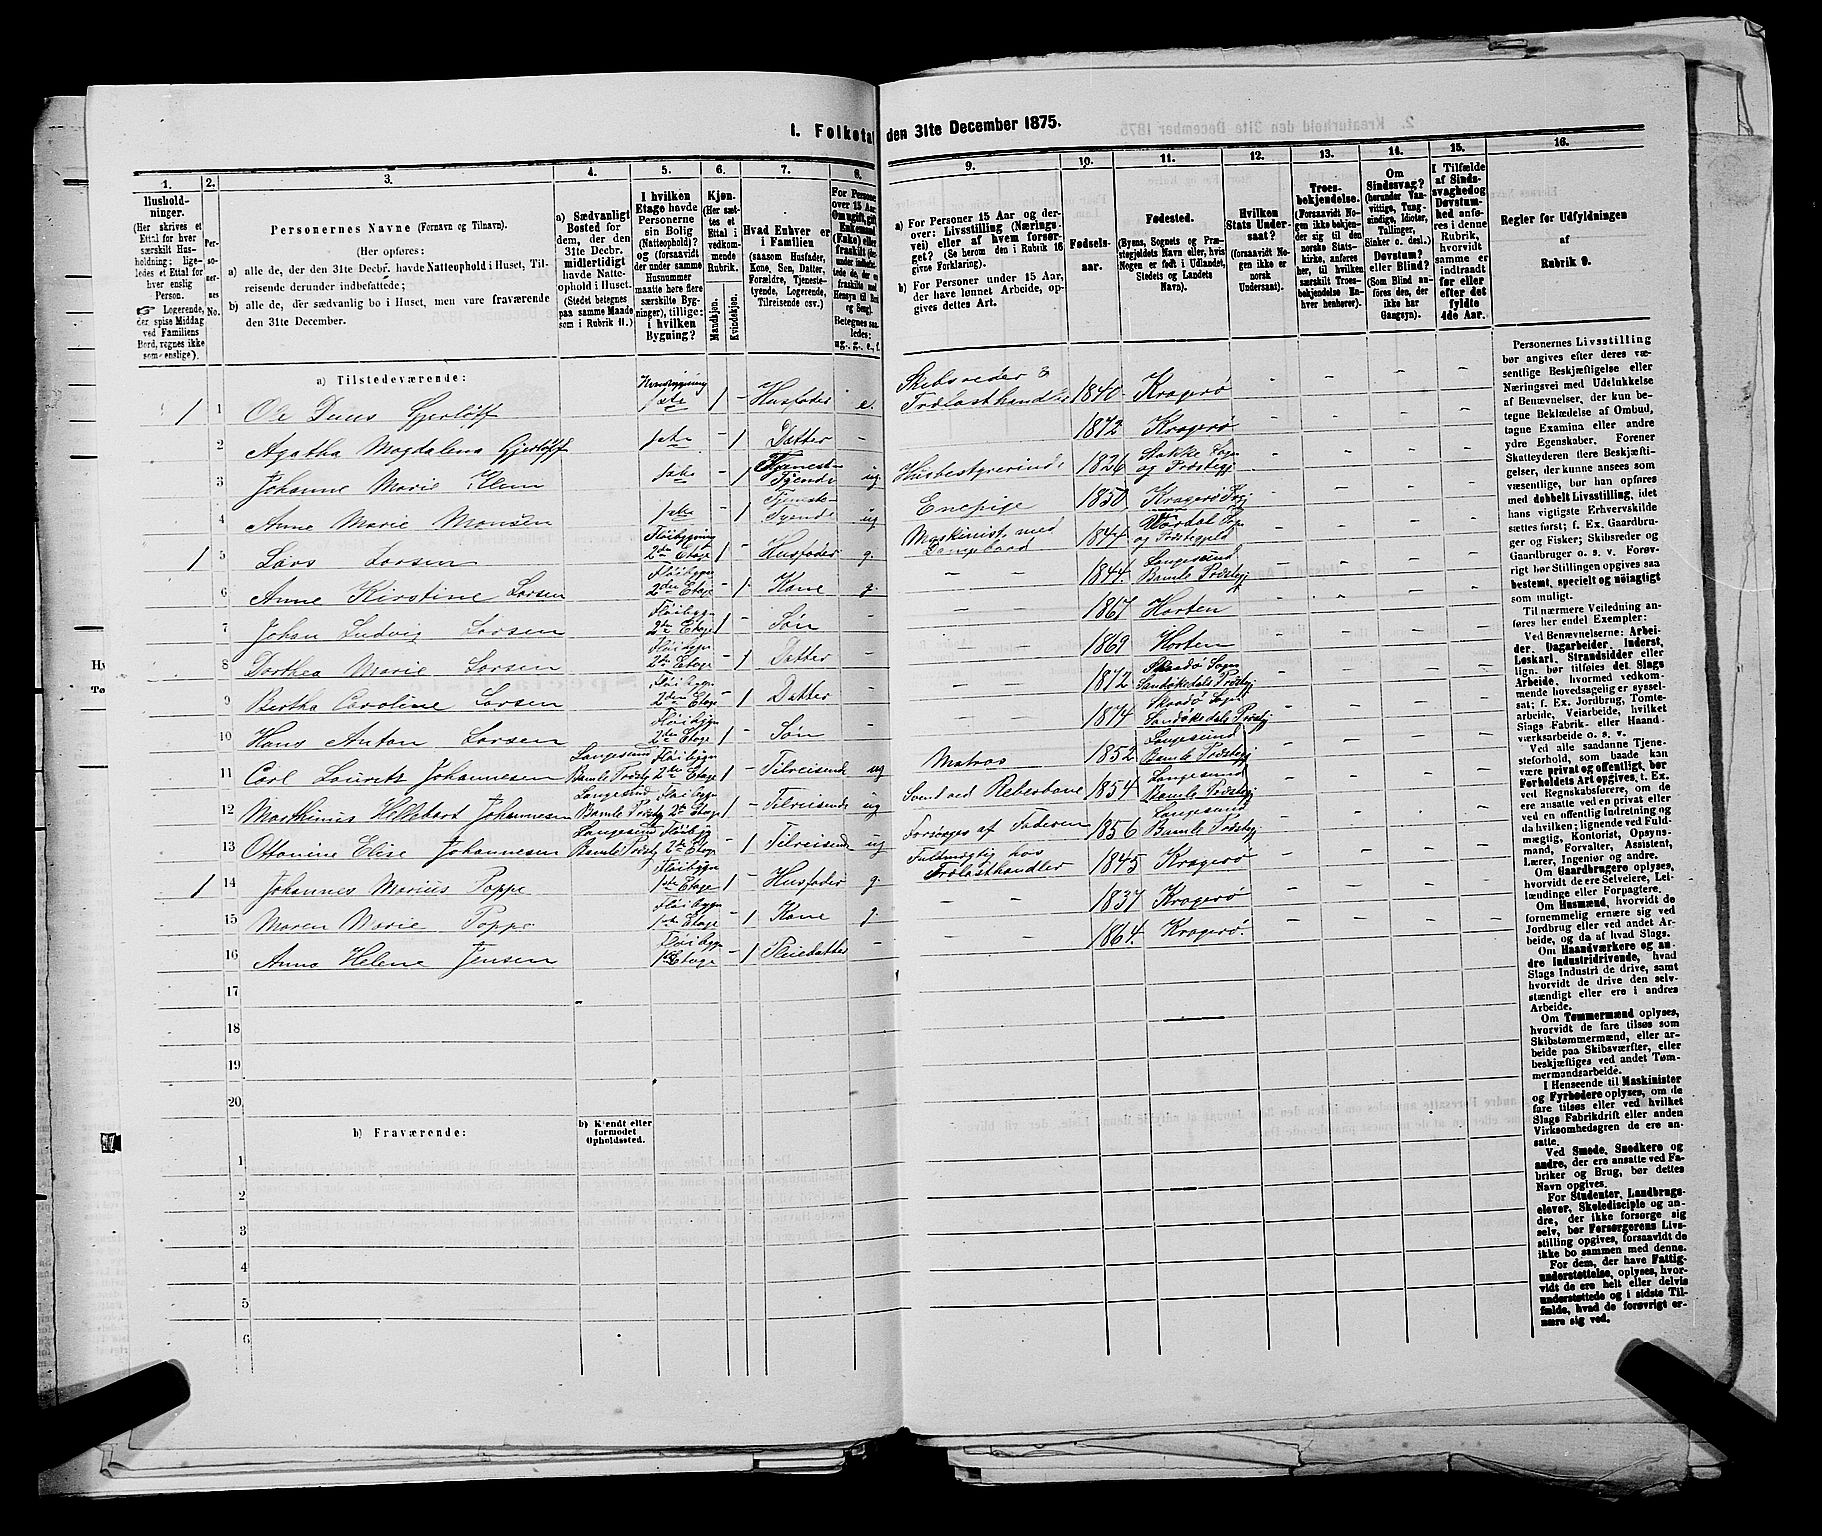 1. Folketal den 31te December 1875.
2. Kreaturhold den 31te December 1875
1. 2. 3. 4. 5. 6. 7. 8. 9. 10. 11. 12. 13. 14. 15. 16.
Hushold-
ninger.
(Her skrives et
Ettal for hver
særskilt Hus-
holdning; lige-
ledes et Ettal for
hver enslig
Person.
☞ Logerende,
der spise Middag
ved Familiens
Bord, regnes ikke
som enslige).
Per-
soner-
nes
No.
Personernes Navne (Fornavn og Tilnavn).
(Her opføres:
a) alle de, der den 31te Decbr. havde Natteophold i Huset, Til-
reisende derunder indbefattede;
b) alle de, der sædvanlig bo i Huset, men vare fraværende
den 31te December.
a) Sædvanligt
Bosted for
dem, der den
31te Decbr.
midlertidigt
havde Natte-
ophold i Huset.
(Stedet betegnes
paa samme Maade
som i Rubrik 11.)
I hvilken
Etage havde
Personerne
sin Bolig
(Natteophold)?
og (forsaavidt
der under samme
Husnummer
maatte høre flere
særskilte Byg-
ninger), tillige:
i hvilken
Bygning?
Kjøn.
(Her sæt-
tes et
Ettal i
vedkom-
mende
Rubrik.
Mandkjøn.
Kvindekjøn.
Hvad Enhver er
i Familien
(saasom Husfader,
Kone, Søn, Datter,
Forældre, Tjeneste-
tyende, Logerende,
Tilreisende osv.)
For Personer
over 15 Aar:
Om ugift, gift,
Enkemand
(Enke) eller
fraskilt
Betegnes saa-
ledes:
ug., g., e., f.
a) For Personer 15 Aar og der-
over: Livsstilling (Nærings-
vei) eller af hvem forsør-
get? (Se herom den i Rubrik 16
givne Forklaring).
b) For Personer under 15 Aar,
der have lønnet Arbeide, op-
gives dettes Art.
Fødsels-
aar.
Fødested.
(Byens, Sognets og Præ-
stegjeldets Navn eller, hvis
Nogen er født i Udlandet,
Stedets og Landets
Navn).
Hvilken
Stats Under-
saat?
(forsaavidt No-
gen ikke er
norsk
Undersaat).
Troes-
bekjendelse.
(Forsaavidt No-
gen ikke bekjen-
der sig til den
norske Stats-
kirke, anføres
her, til hvilken
særskilt Troes-
bekjendelse En-
hver henhører).
Om
Sindssvag?
(herunder Van-
vittige, Tung-
sindige, Idioter,
Tullinger,
Sinker o. desl.)
Døvstum?
eller Blind?
(Som Blind an-
føres den, der
ikke har
Gangsyn).
I Tilfælde
af Sinds-
svaghed og
Døvstum-
hed anfø-
res i denne
Rubrik,
hvorvidt
samme er
indtraadt
før eller
efter det
fyldte
4de Aar.
Regler for Udfyldningen
af
Rubrik 9.
a) Tilstedeværende:
1 1 Ole Duus Gjerløff 1ste 1 - Husfader e. Skibsreder & Trælasthandler 1840 Kragerø
2 Agatha Magdalena Gjerløff 1ste - 1 Datter - 1872 Kragerø
3 Johanne Marie 1ste - 1 Tjenest- Tjende ug. Husbestyrerinde 1826 Sogn og Præstegj
4 Anne Marie Monsen 1ste - 1 Tjeneste- Tyende ug Enepige 1850 Kragerø
1 5 Lars Larsen Fløibygning 2den Etage 1 - Husfader g. Maskinist med Dampbaad 1844 Sogn og Præstegjeld
6 Anne Kirstine Larsen Fløibygn 2den Etage - 1 Kone g. - - 1844. Langesund Bamle Præstegj
7 Johan Ludvig Larsen Fløibygn 2de Etage 1 - Søn - - - 1867 Horten
8 Dorthea Marie Larsen Fløibygn 2de Etage - 1 Datter - 1869 Horten
9 Bertha Caroline Larsen Fløibygn 2den Etage - 1 Datter - 1872 Skaadø Sogn Sandøkedals Præstgj
10 Hans Anton Larsen Fløibygn 2den Etage 1 - Søn - 1874 Skaadø Sogn Sandøkedals Præstgj
11 Carl Lauritz Johannesen Langesund Bamle Præstgj Fløibygn 2de Etage 1 - Tilreisende ug Matros 1852 Langesund Bamle Præstegj
12 Mathinius Hellebart Johannesen Langesund Bamle Præstgj Fløibygn 2de Etage 1 - Tilreisende ug Svend ved Reberbane 1854 Langesund Bamle Præstegj
13 Ottomine Elise Johannesen Langesund Bamle Præstgj Fløibygn 2de Etage - 1 Tilreisende ug Forsørges af Faderen 1856 Langesund Bamle Præstegj
1 14 Johannes Marius Poppe Fløibygn 1ste Etage 1 - Husfader g. Fuldmægtig hos Trælasthandler 1845 Kragerø
15 Maren Marie Poppe Fløibygn 1ste Etage - 1 Kone g. - - 1837 Kragerø
16 Anna Helene Jensen Fløibygn 1ste Etage - 1 Pleiedatter - - - 1864. Kragerø.
17
18
19
20
b) Fraværende:
b) Kjendt eller
formodet
Opholdssted.
1
2
3
4
5
6
Personernes Livsstilling
bør angives efter deres væ-
sentlige Beskjæftigelse eller
Næringsvei med Udelukkelse
af Benævnelser, der kun be-
tegne Beklædelse af Ombud,
tagne Examina eller andre
ydre Egenskaber. Forener
Skatteyderen flere Beskjæfti-
gelser, der kunne ansees som
væsentlige, bør han opføres
med dobbelt Livsstilling, idet
hans vigtigste Erhvervskilde
sættes først; f. Ex. Gaardbru-
ger og Fisker; Skibsreder og
Gaardbruger o. s. v. Forøv-
rigt bør Stillingen opgives saa
bestemt, specielt og nøiagtigt
som muligt.
Til nærmere Veiledning an-
føres her endel Exempler:
Ved Benævnelserne: Arbei-
der, Dagarbeider, Inderst,
Løskarl, Strandsidder eller
lign. bør tilføies det Slags
Arbeide, hvormed vedkom-
mende hovedsagelig er syssel-
sat; f. Ex. Jordbrug, Tomte-
arbeide, Veiarbeide, hvilket
Slags Fabrik- eller Haand-
værksarbeide o. s. v.
Ved alle saadanne Tjene-
steforhold, som baade kan
være privat og offentligt, bør
Forholdets Art opgives, t. Ex.
ved Regnskabsførere, om de
ere ansatte ved en privat eller
ved en offentlig Indretning og
da hvilken; lignende ved Fuld-
mægtig, Kontorist, Opsyns-
mand, Forvalter, Assistent,
Lærer, Ingeniør og andre.
Om Gaardbrugere oplyses,
hvorvidt de ere Selveiere, Lei-
lændinge eller Forpagtere.
Om Husmænd, hvorvidt de
fornemmelig ernære sig ved
Jordbrug eller ved andet Ar-
beide, og da af hvad Slags.
Om Haandværkere og an-
dre Industridrivende, hvad
Slags Industri de drive, samt
hvorvidt de drive den selv-
stændigt eller ere i andres
Arbeide.
Om Tømmermænd oplyses,
hvorvidt de fare tilsøs som
Skibstømmermænd, eller ar-
beide paa Skibsværfter, eller
beskjæftiges ved andet Tøm-
mermandsarbeide.
I Henseende til Maskinister
og Fyrbødere oplyses, om de
fare tilsøs eller ved hvilket
Slags Fabrikdrift eller anden
Virksomhedsgren de ere an-
satte.
Ved Smede, Snedkere og
andre, der ere ansatte ved Fa-
briker og Brug, bør dettes
Navn opgives.
For Studenter, Landbrugs-
elever, Skoledisciple og an-
dre, der ikke forsørge sig
selv, bør Forsørgerens Livs-
stilling opgives, forsaavidt de
ikke bo sammen med denne.
For dem, der have Fattig-
understøttelse, oplyses, hvor-
vidt de ere helt eller delvis
understøttede og i sidste Til-
fælde, hvad de forøvrigt er-
nære sig ved.